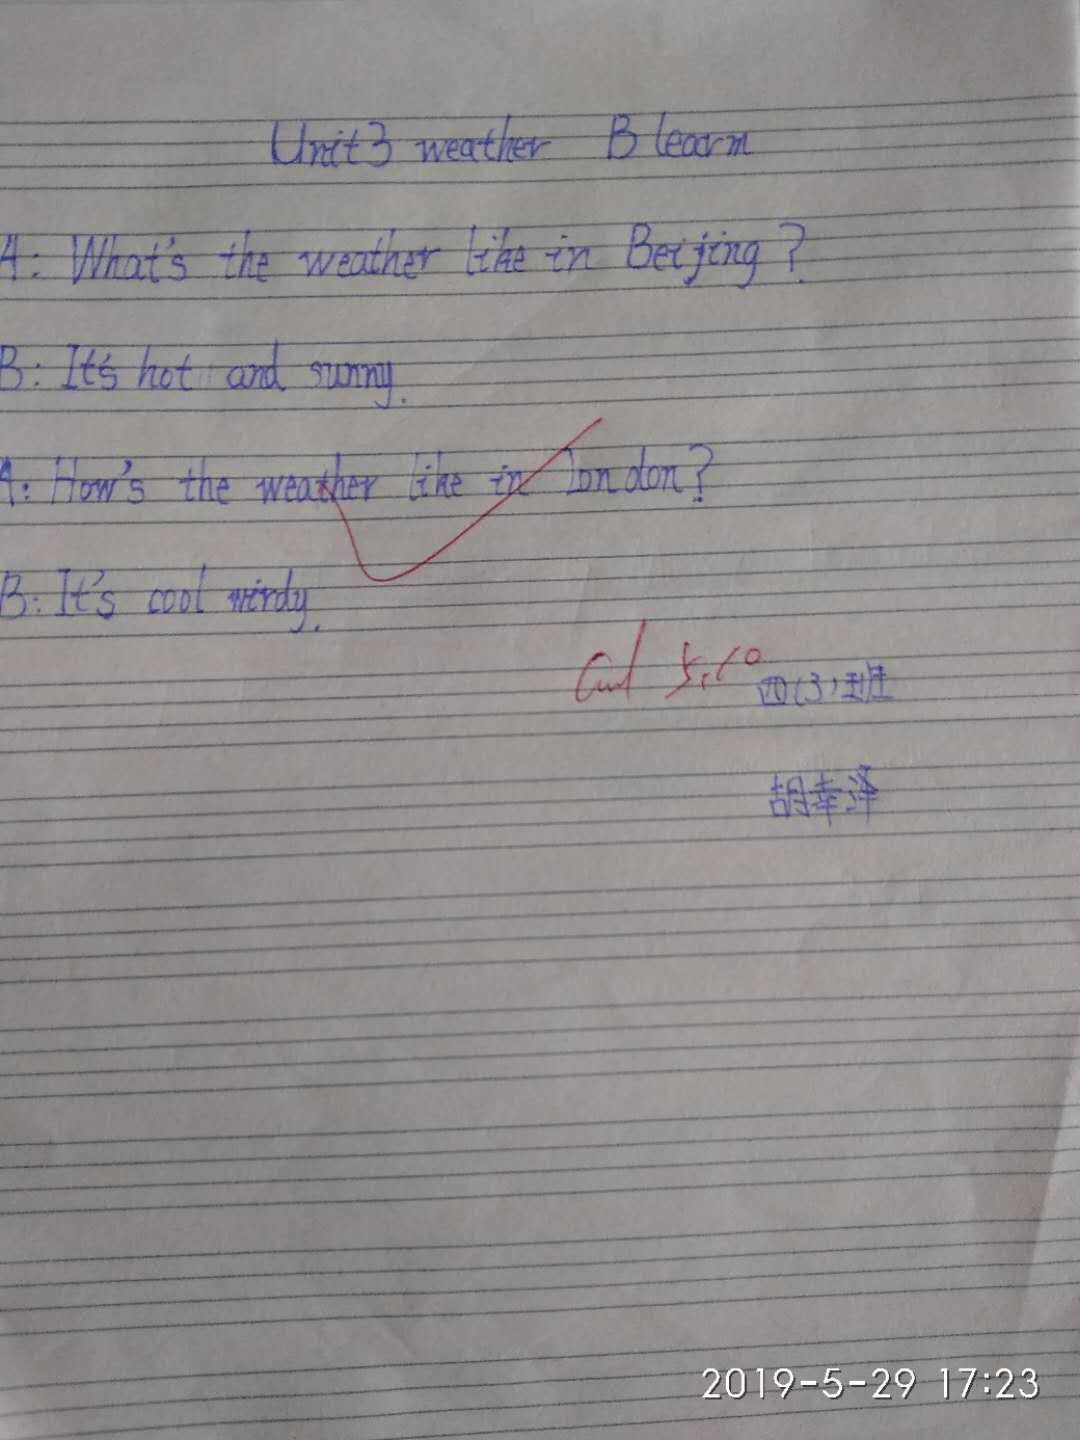 Unit3 weather B learn
A: What's the weather like in Beijing?
B: It's hot and sunny.
A: How's the weather like in london?
B: It's cool windy.
5.10
四(3)班
胡幸泽
2019-5-29 17:23